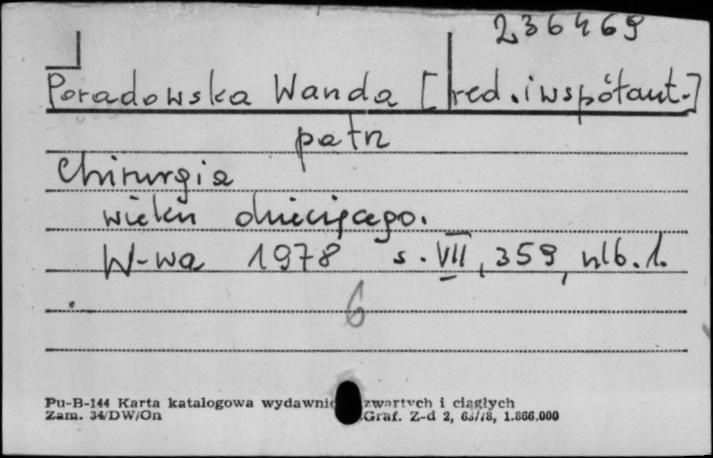 236469
Poradowska Wanda [red. i współaut.]
patrz
Chirurgia
wieku dziecięcego.
W-wa 1978 s. VII, 359, nlb. 1.
6
Pu-B-144 Karta katalogowa wydawnic zwartych i ciągłych
Zam. 34/DW/On Graf. Z-d 2, 63/78, 1.866.000